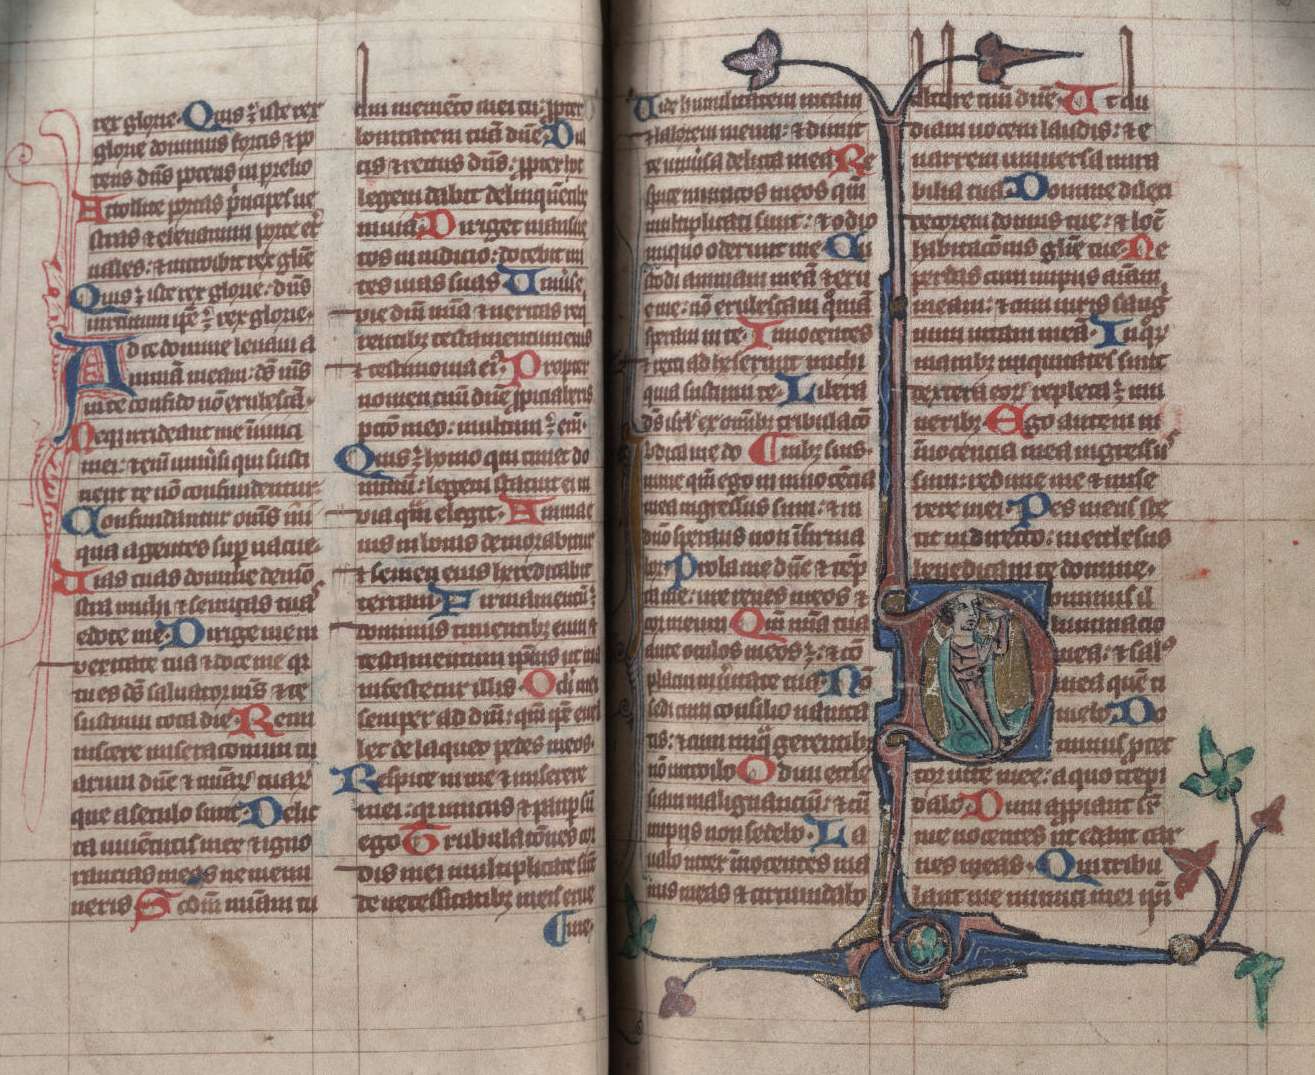 rex glorie. Quis ē iste rex
glorie dominus fortis ⁊ po
tens dn̄s potens in prelio
Attollite portas p̄ncipes ue
stras ⁊ eleuamini porte et̉
nales: ⁊ introibit rex glīe
Quis ē iste rex glorie. dn̄s
uirtutum ip̄e ē rex glorie.
Ad te domine leuaui a
nimā meam: ds̄ ms̄
in te confido nō erubescā.
Neqꝫ irrideant me inimici
mei: ⁊enī uniūsi qui susti
nent te nō confundentur
Confundantur om̄s ini
qua agentes sup̄uacue.
Uias tuas domine demō
stra michi ⁊ semitas tuas
edoce me. Dirige me in
ueritate tua ⁊ doce me qꝛ
tu es ds̄ saluator ms̄ ⁊ te
sustinui tota die. Remi
niscere miseracionum tu
arum dn̄e ⁊ mīaꝝ tuaꝝ
que a seculo sunt. Delic
ta iuuētutis mee ⁊ igno
rancias meas ne memi
neris. Scdm̄ mīam tu
am memēto mei tu: ꝓpter
bonitatem tuā dn̄e Dul
cis ⁊ rectus dn̄s: ꝓpter hoc
legem dabit delinquētibꝫ
in uia. Diriget mansue
tos in iudicio: docebit mi
tes uias suas Uniūse
uie dn̄i mīa ⁊ ueritas req
rentibꝫ testamentum eius
⁊ testimonia ei᷒. Propter
nomen tuū dn̄e ꝓpiciaberis
pctō meo: multum ē enī.
Quis ē homo qui timet do
minū: legem statuit ei in
uia quā elegit. Anima
eius in bonis demorabitur
⁊ semen eius hereditabit
terram Firmamentū ē
dominus timentibꝫ eum ⁊
testamentum ipsius ut ma
nifestetur illis. Oculi mei
semper ad dn̄m: qm̄ ip̄e euel
let de laqueo pedes meos.
Respice in me ⁊ miserere
mei: qꝛ unicus ⁊ paup sū
ego Tribulacōnes cor
dis mei multiplicate sūt
de necessitatibꝫ meis erue
me.
Uide humilitatem meam
⁊ laborem meum: ⁊ dimit
te uniūsa delicta mea Re
spice inimicos meos qm̄
multiplicati sunt: ⁊ odio
iniquo oderunt me. Cu
stodi animam meā ⁊ eru
e me: nō erubescam qm̄
speraui in te. Innocentes
⁊ recti adheserunt michi
quia sustinui te. Libera
ds̄ isrl̄ ex om̄ibꝫ tribulacōi
bꝫ suis.
Iudica me do
mine qm̄ ego in innocētia
mea ingressus sum: ⁊ in
dn̄o sperans non īfirma
bor. Proba me dn̄e ⁊ tēp
ta me: ure renes meos ⁊
cor meum Qm̄ mīa tua
ante oculos meos ē: ⁊ cō
placui in ūitate tua. Nō
sedi cum consilio uanita
tis: ⁊ cum iniq̄ gerentibꝫ
nō introibo Odiui eccle
siam malignanciū: ⁊ cū
impijs non sedebo. La
uabo inter īnocentes ma
nus meas ⁊ circumdabo
altare tuū dn̄e. Ut au
diam uocem laudis: ⁊ e
narrem uniuersa mira
bilia tua. Domine dilexi
decorem domus tue: ⁊ locū
habitacōnis glīe tue. Ne
perdas cum impijs aīam
meam: ⁊ cum uiris sang
uinum uitam meā. In qoꝝ
manibꝫ iniquitates sunt
dextera eoꝝ repleta ē mu
neribꝫ Ego autem in
īnocentia mea ingressus
sum: redime me ⁊ mise
rere mei. Pes meus ste
tit in directo: in ecclesijs
benedicam te domine.
Dominus il
luminacio
mea: ⁊ sal᷒
mea quē ti
mebo Do
minus ꝓtec
tor uite mee: a quo trepi
dabo Dum appropiant sr̄
me nocentes ut edant car
nes meas. Qui tribu
lant me inimici mei ip̄i